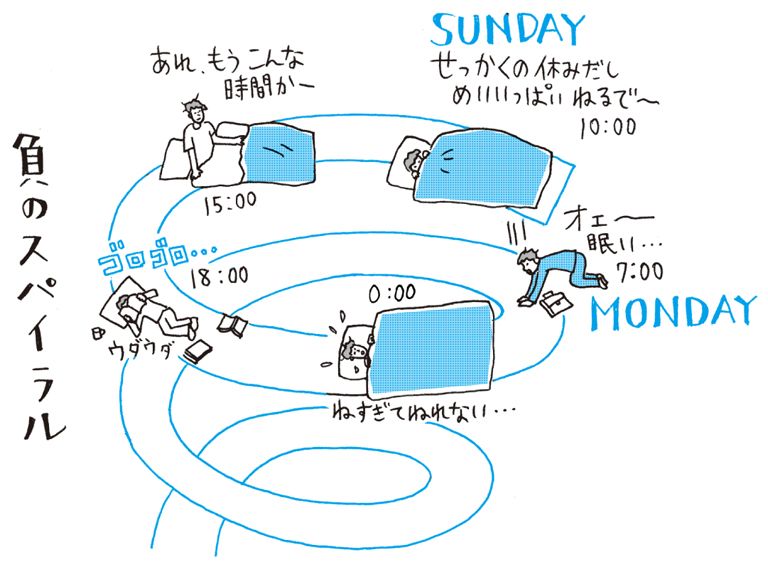 負のスパイラル
SUNDAY
せっかくの休みだし
めいいっぱいねるで〜
10:00
あれ、もうこんな
時間かー
15:00
ゴロゴロ...
18:00
ウダウダ
0:00
ねすぎてねれない...
オェ〜
眠い...
7:00
MONDAY